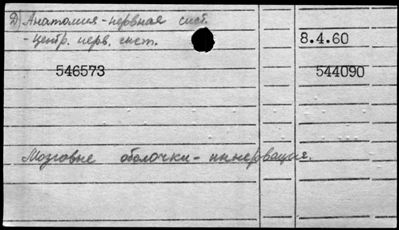 Д) Анатомия - нервная сист.
- центр. нерв. сист.
8.4.60
546573
544090
Мозговые оболочки - иннервация.